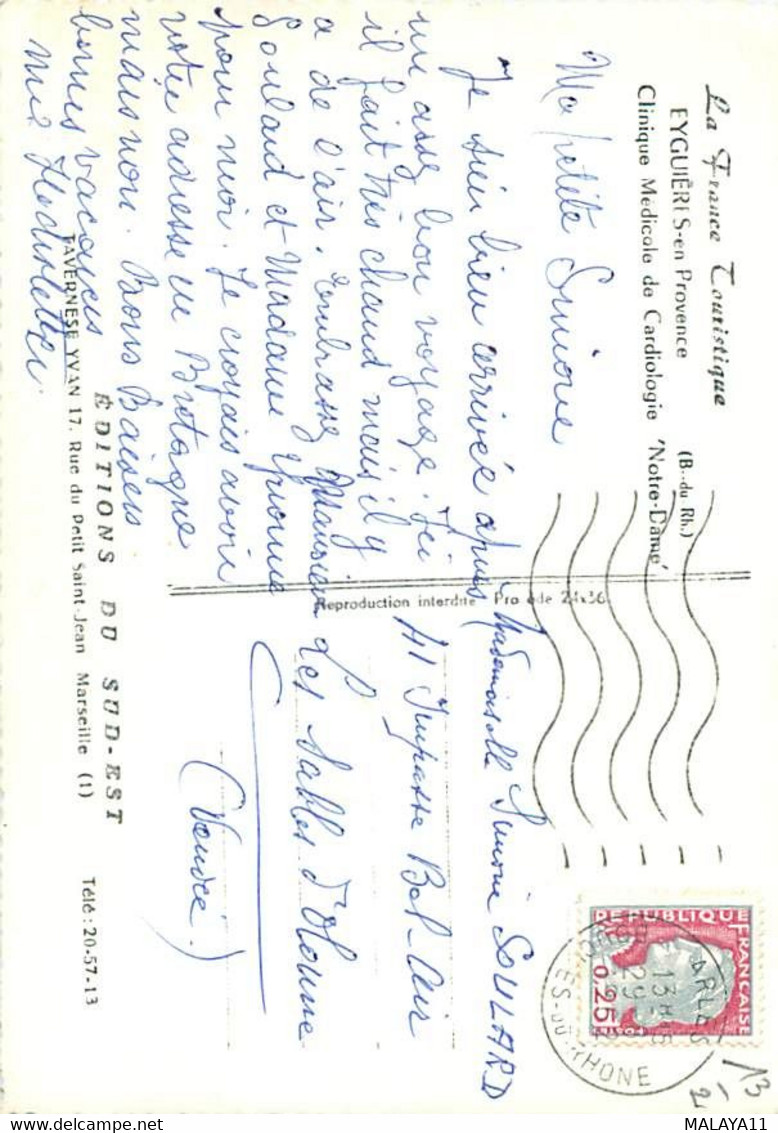 La France Touristique
EYGUIÈRES-en Provence (B.-du Rh.)
Clinique Médicale de Cardiologie 'Notre-Dame'
Ma petite Simone
Je suis bien arrivée après
un assez bon voyage. Ici
il fait très chaud mais il y
a de l'air. Embrassez Monsieur
Soulard et Madame Yvonne
pour moi. Je croyais avoir
votre adresse en Bretagne
mais non. Bons Baisers
bonnes vacances
Reproduction interdite
Mademoiselle Simone SOULARD
41 Impasse Bel-Air
Les Sables d'Olonne
(Vendée)
ÉDITIONS DU SUD-EST
TAVERNESE YVAN 17, Rue du Petit Saint-Jean Marseille (1) Télé : 20-57-13
RÉPUBLIQUE FRANÇAISE
0,25
ARLES
13H15
BOUCHES-DU-RHONE
13
2
MALAYA11